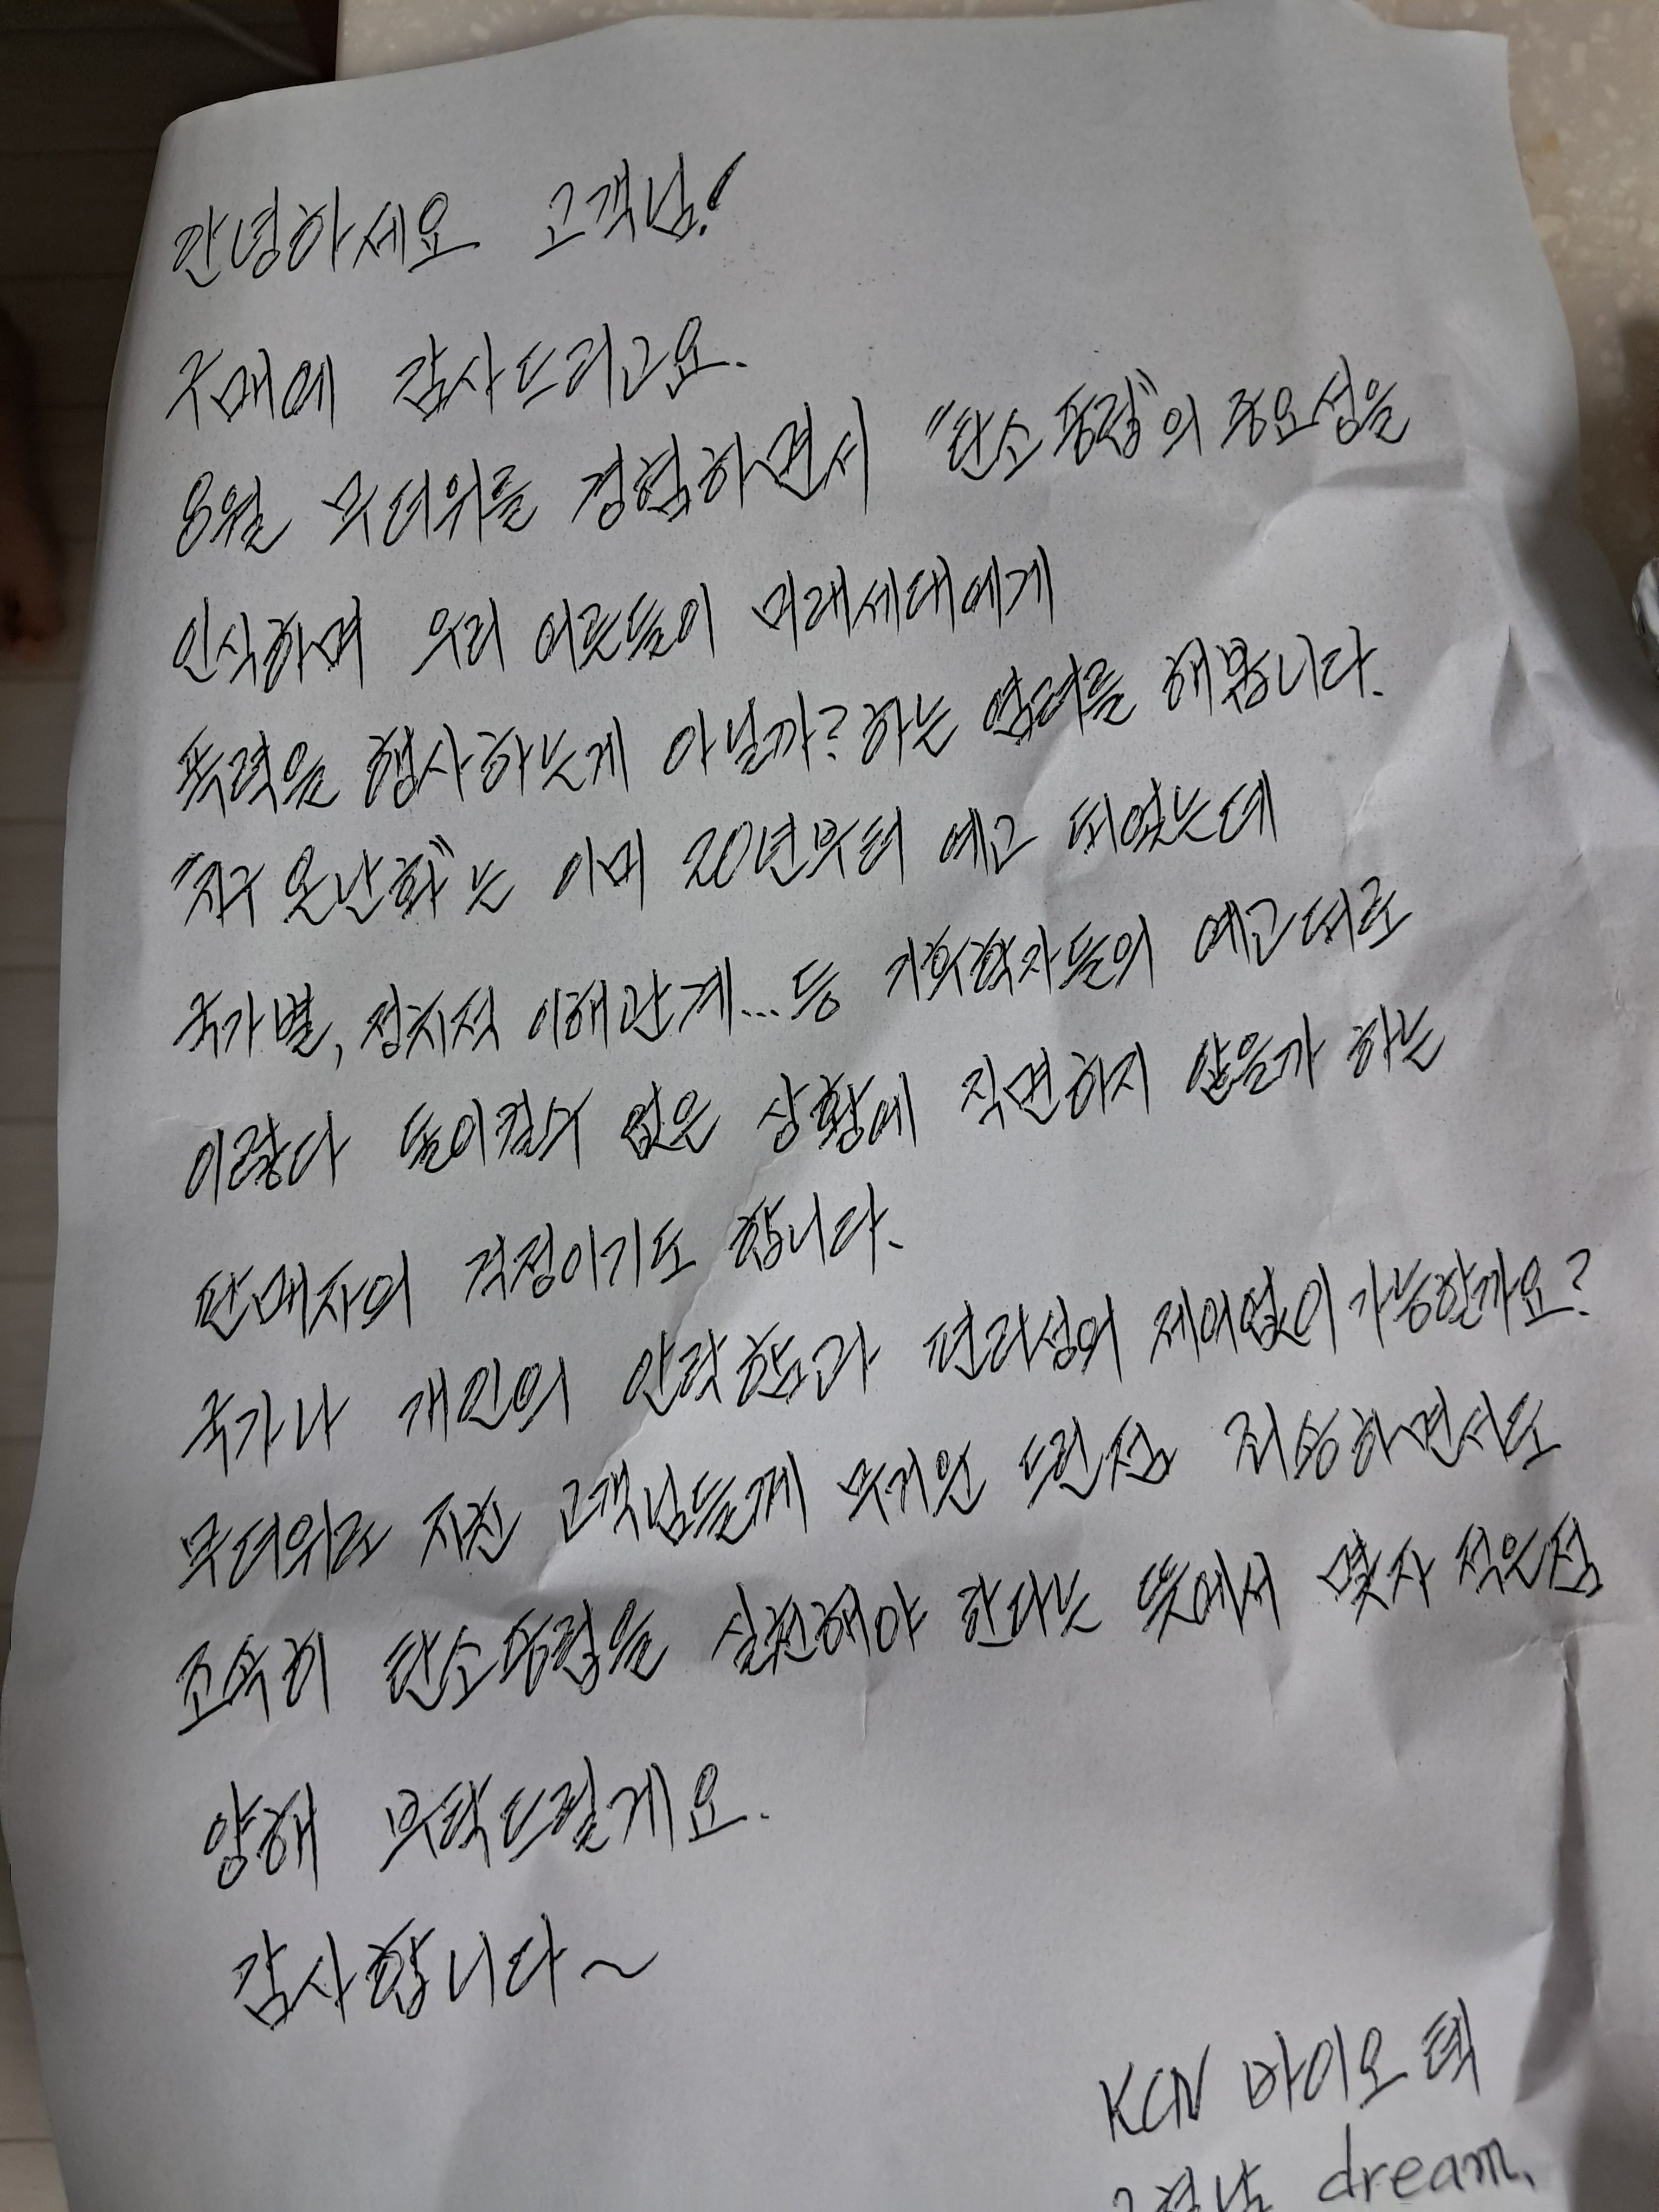 안녕하세요 고객님!
구매에 감사드리고요.
8월 무더위를 경험하면서 "탄소중립"의 중요성을
인식하며 우리 어른들이 미래세대에게
폭력을 행사하는게 아닐까? 하는 염려를 해봅니다.
"지구 온난화"는 이미 20년부터 예고 되었는데
국가별, 정치적 이해관계... 등 기후학자들의 예고대로
이렇다 돌이킬수 없은 상황에 직면하지 않을가 하는
판매자의 걱정이기도 합니다.
국가나 개인의 안락함과 편리성의 제어없이 가능할까요?
무더위로 지친 고객님들께 무거운 드린점 죄송하면서도
조속히 탄소중립을 실천해야 한다는 뜻에서 몇자 적은점
양해 부탁드릴게요.
감사합니다~
KCN 바이오텍
dream.